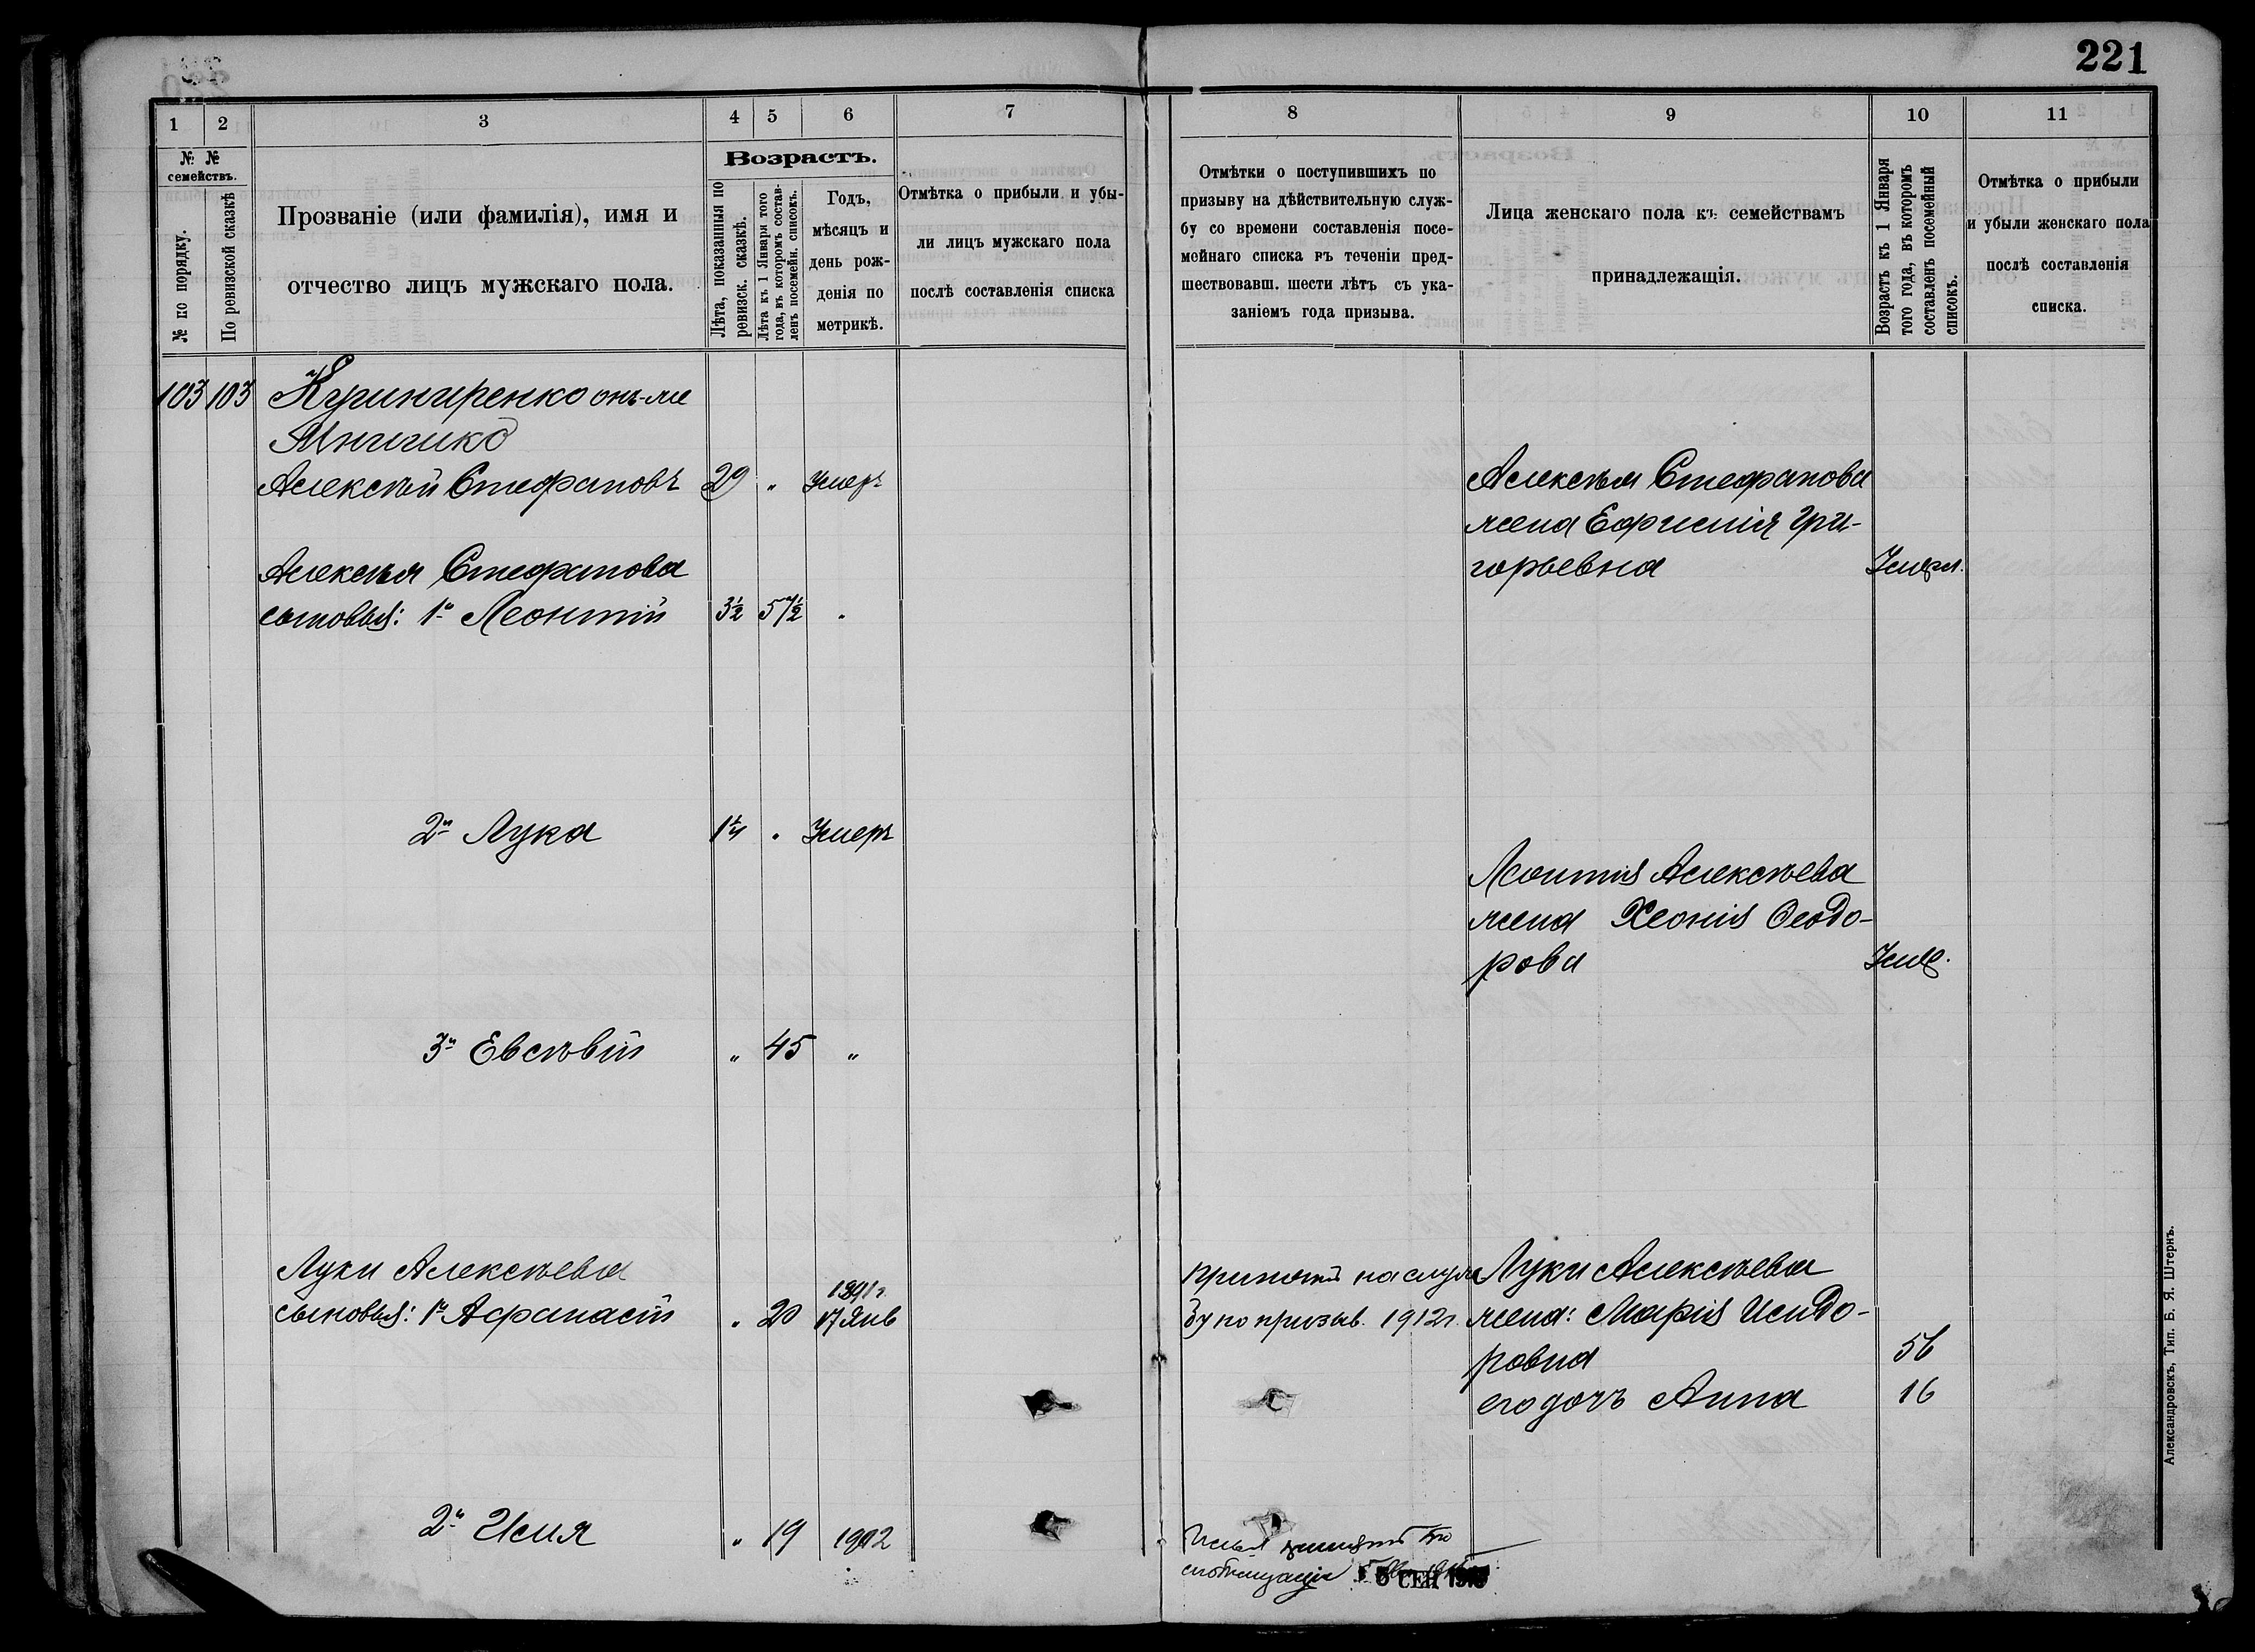 221
1 2 3 4 5 6 7
№ № семействъ.
№ по порядку.
По ревизской сказкѣ
Прозваніе (или фамилія), имя и
отчество лицъ мужскаго пола.
Возрастъ.
Лѣта, показанныя по
ревизск. сказкѣ.
Лѣта къ 1 Января того
года, въ которомъ состав-
ленъ посемейн. списокъ.
Годъ,
мѣсяцъ и
день рож-
денія по
метрикѣ.
Отмѣтка о прибыли и убы-
ли лицъ мужскаго пола
послѣ составленія списка
103 103
Алексѣй Стефановъ 29 " Умеръ
Алексѣя Стефанова
сыновья: 1й Леонтій 3½ 57½ "
2й Лука 1¼ " Умеръ
3й Евсѣвій " 45 "
Луки Алексѣева
1891г.
сыновья: 1й Афанасій " 20 17 Янв
2й Илія " 19 1902
8 9 10 11
Отмѣтки о поступившихъ по
призыву на дѣйствительную служ-
бу со времени составленія посе-
мейнаго списка въ теченіи пред-
шествовавш. шести лѣтъ съ ука-
заніемъ года призыва.
Лица женскаго пола къ семействамъ
принадлежащія.
Возрастъ къ 1 Января
того года, въ которомъ
составленъ посемейный
списокъ.
Отмѣтка о прибыли
и убыли женскаго пола
послѣ составленія
списка.
Алексѣя Стефанова
жена Ефимія Гри-
горьевна Умерл.
Леонтія Алексѣева
жена Хеонія Ѳеодо-
рова Умер.
Принятъ на служ
бу по призыв. 1912г.
Луки Алексѣева
жена: Марія Исидо-
ровна 56
его дочь Анна 16
мобилизаціи
СЕН
Александровскъ, Тип. Б. Я. Штернъ.